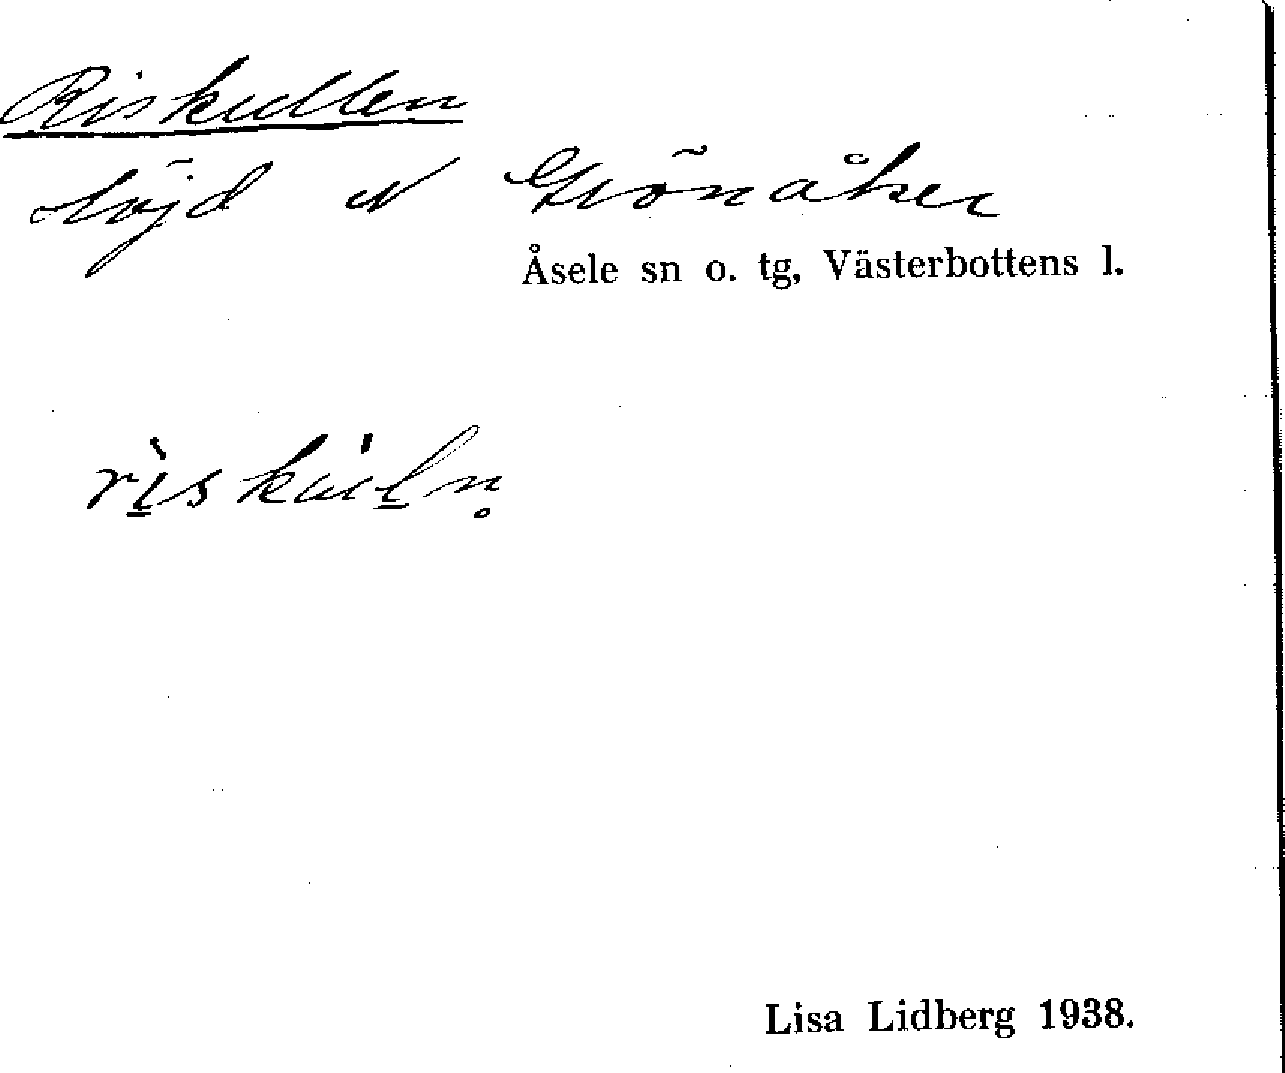 Riskullen
Höjd N Grönåker
Åsele sn o. tg, Västerbottens l.
Lisa Lidberg 1938.